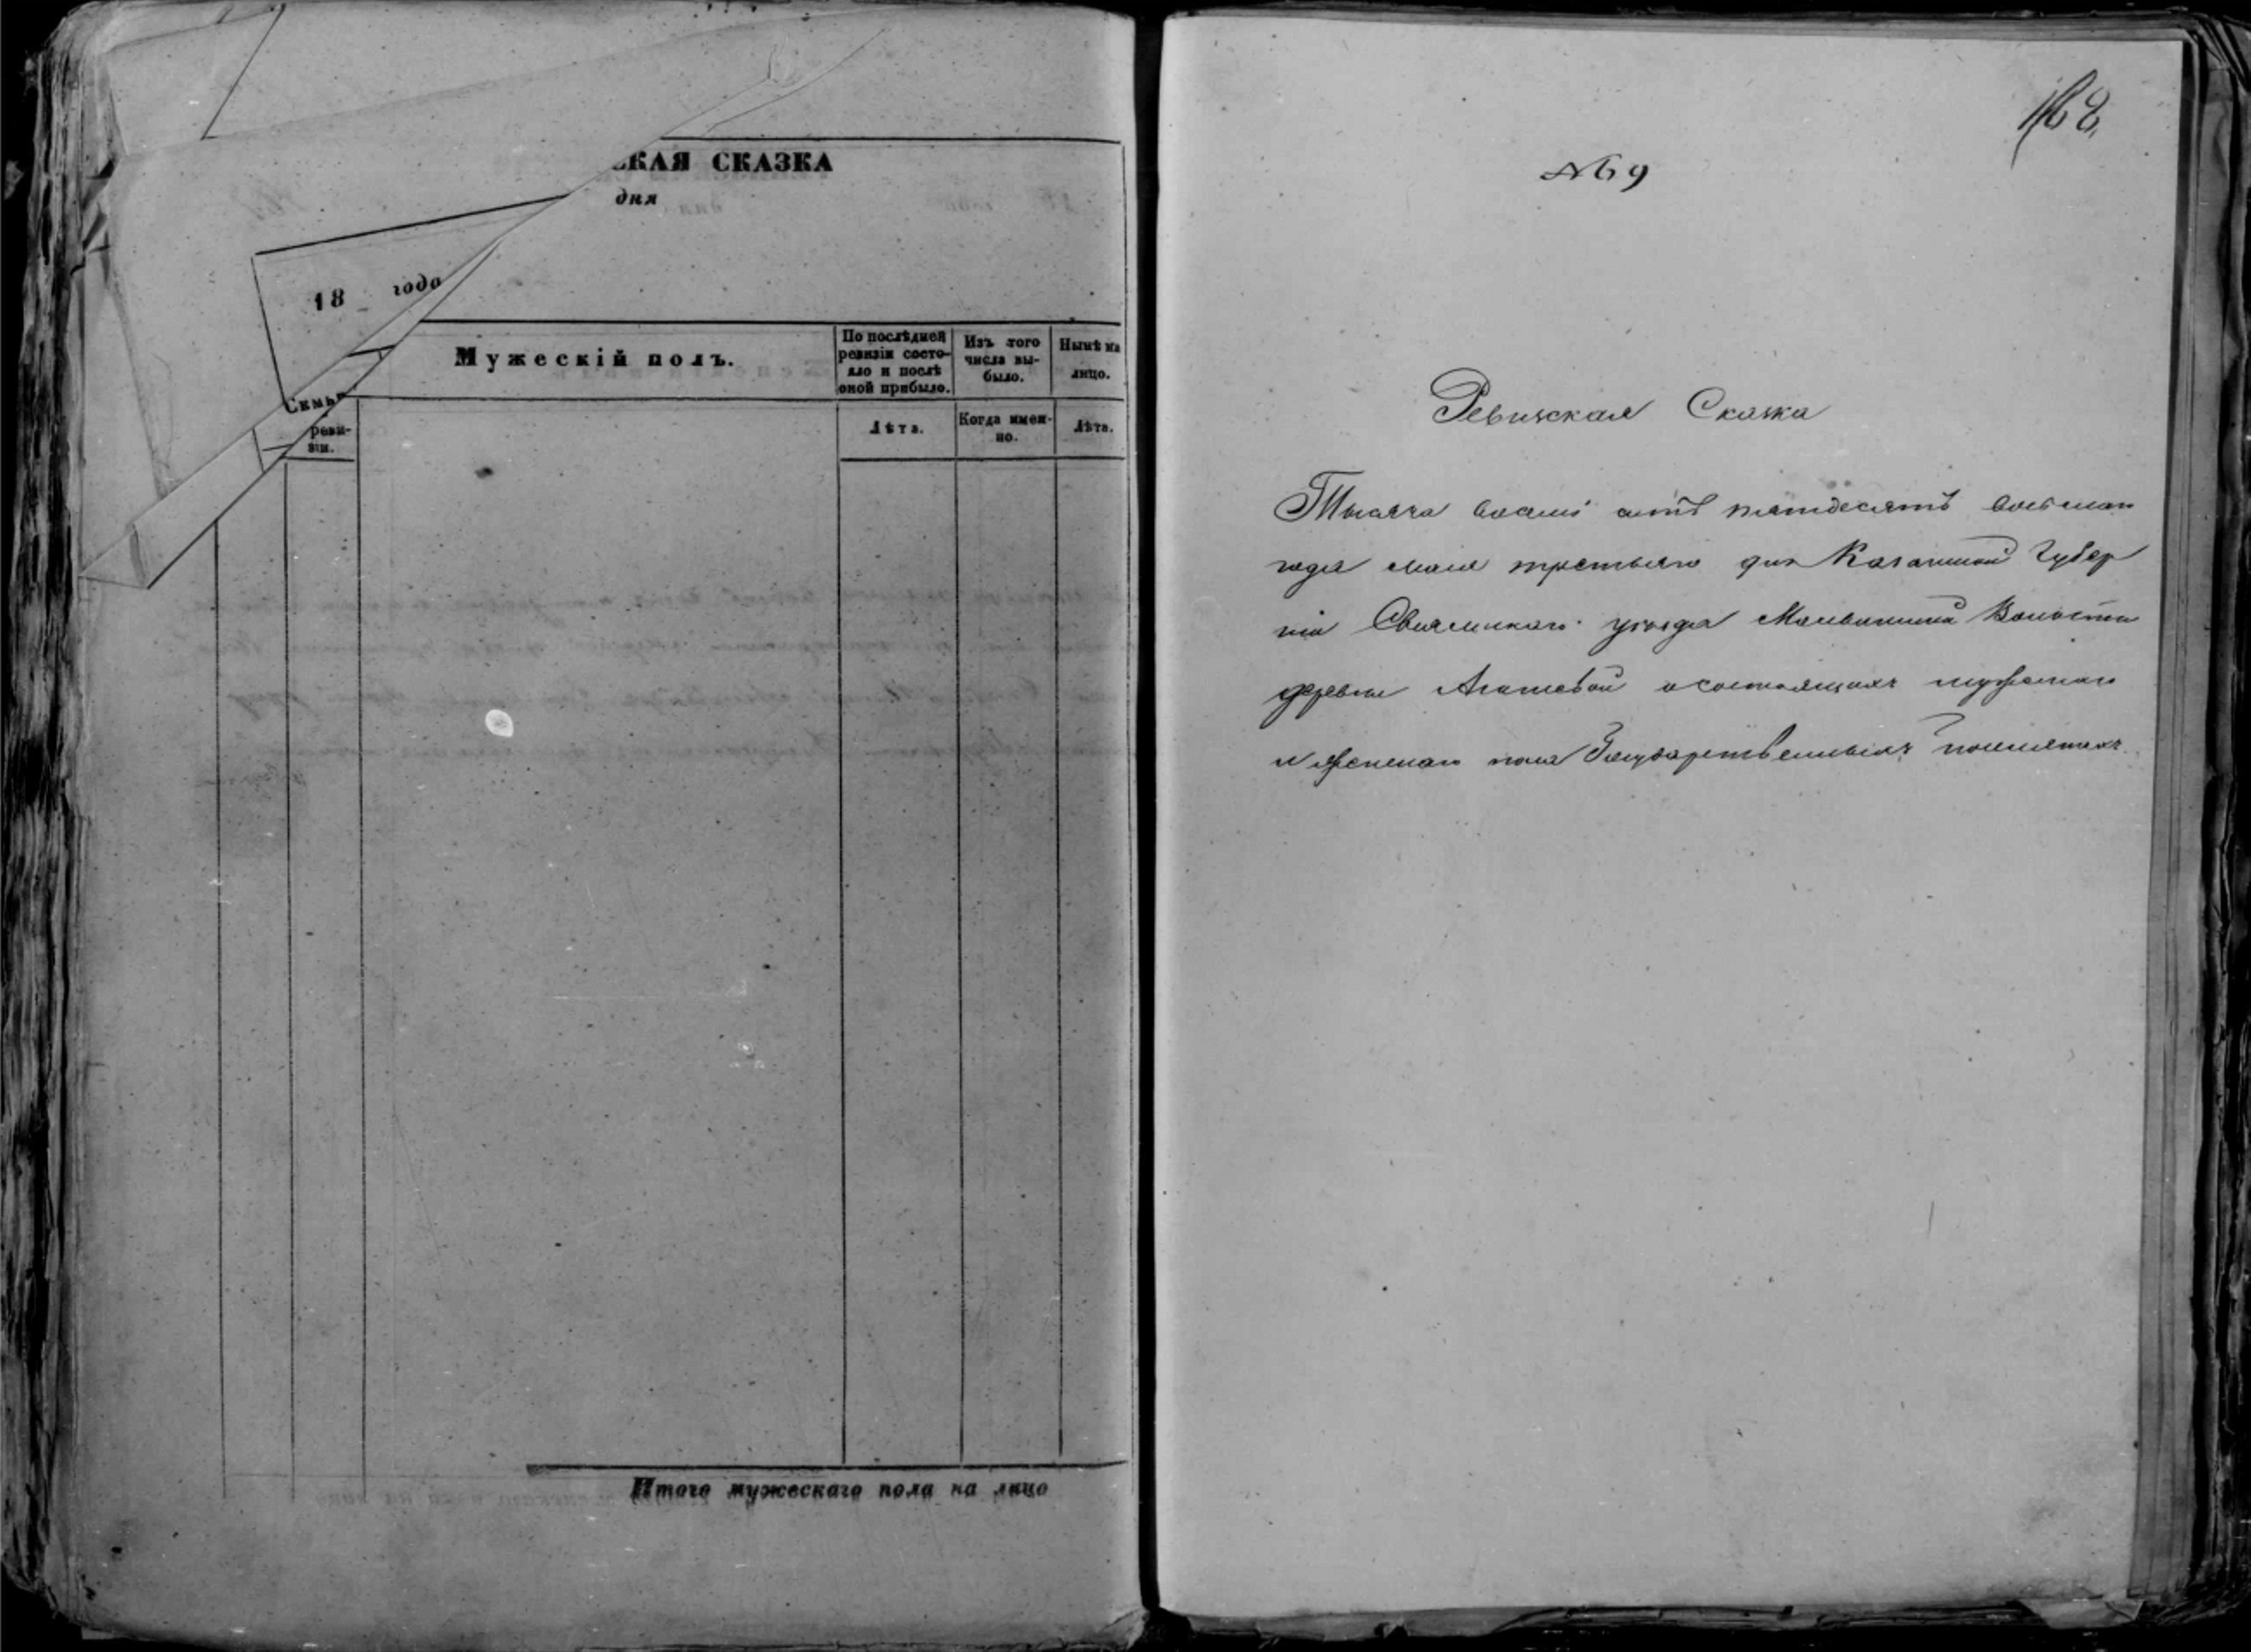 СКАЯ СКАЗКА
дня
18 года
Мужескій полъ.
По послѣдней ревизіи состояло и послѣ оной прибыло.
Изъ того числа выбыло.
Нынѣ на лицо.
реви-
зіи.
Лѣта.
Когда имен-
но.
Лѣта.
Итого мужескаго пола на лицо
168
№ 9
Ревизская Сказка
Тысяча восемь сотъ пятдесятъ восьмаго
года мая третьяго дня Казанской Губер
ніи Свіяжскаго уѣзда Волости
деревни о состоящихъ мужескаго
и женскаго пола Государственныхъ